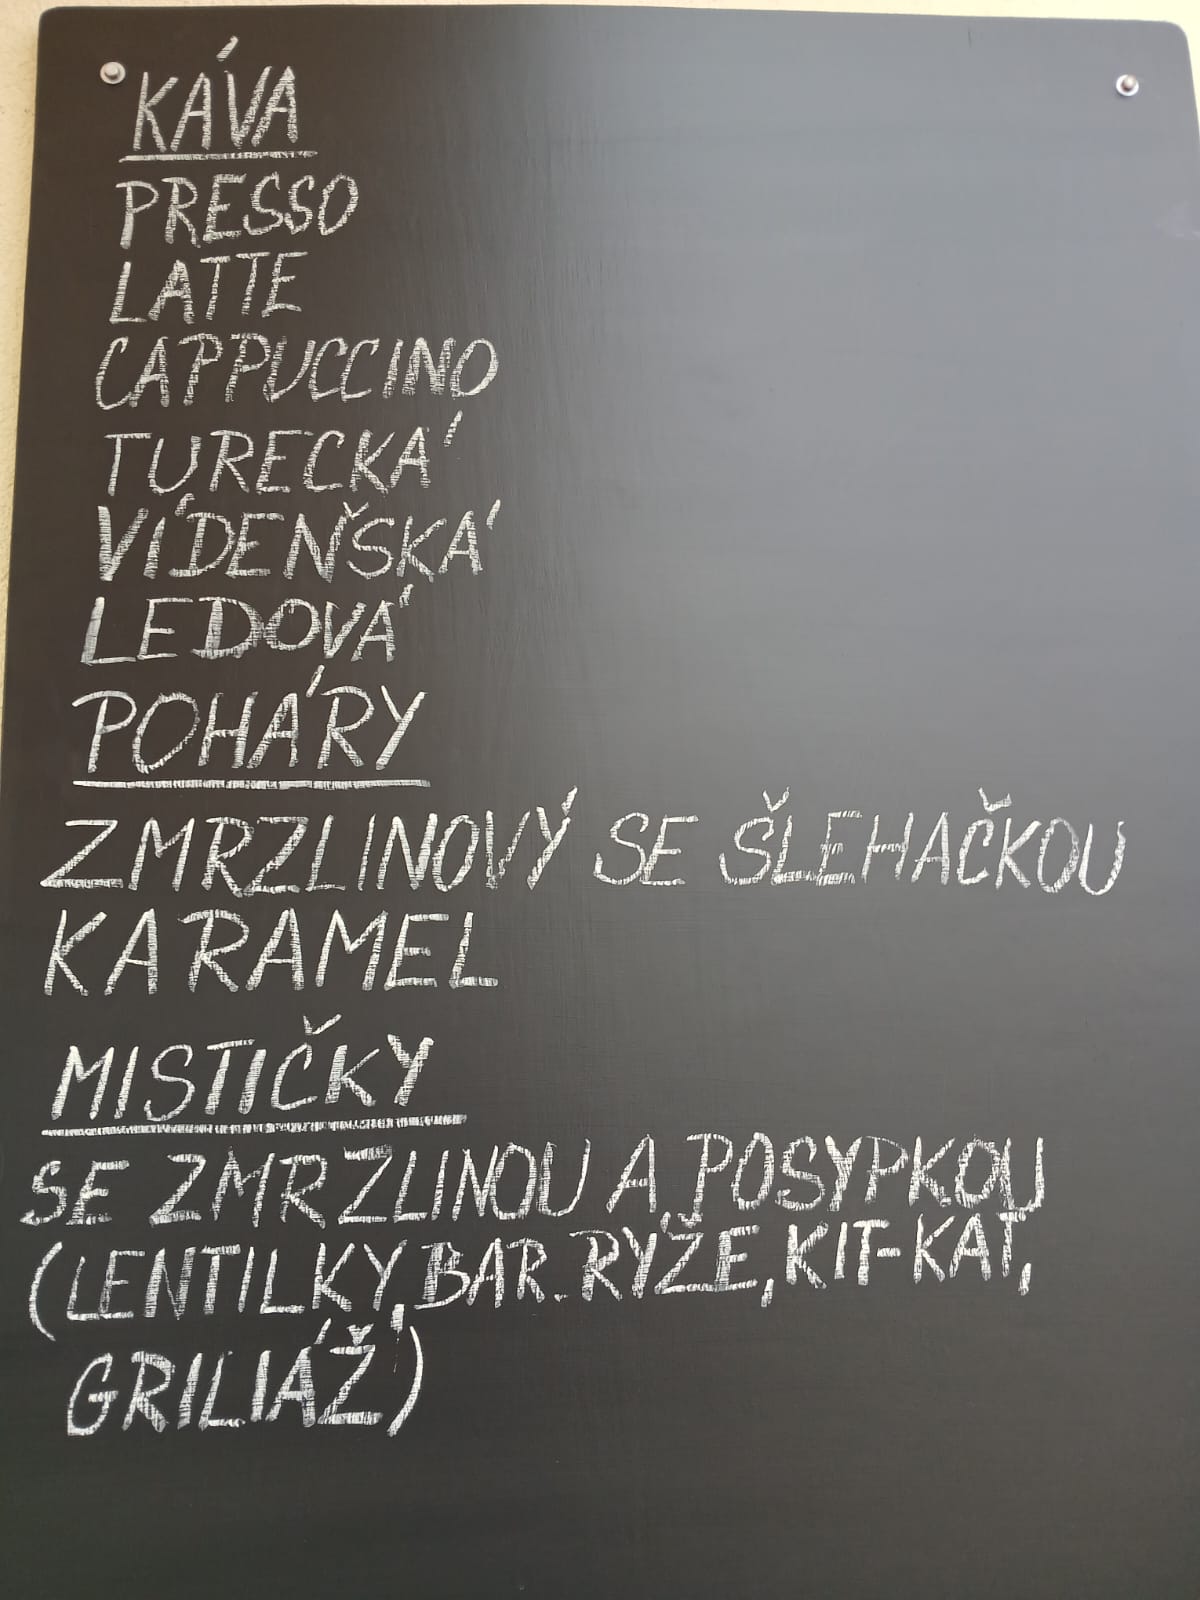 KÁVA
PRESSO
LATTE
CAPPUCCINO
TURECKÁ
VÍDEŇSKÁ
LEDOVÁ
POHÁRY
ZMRZLINOVÝ SE ŠLEHAČKOU
KARAMEL
MISTIČKY
SE ZMRZLINOU A POSYPKOU
(LENTILKY, BAR. RYŽE, KIT-KAT,
GRILIÁŽ)